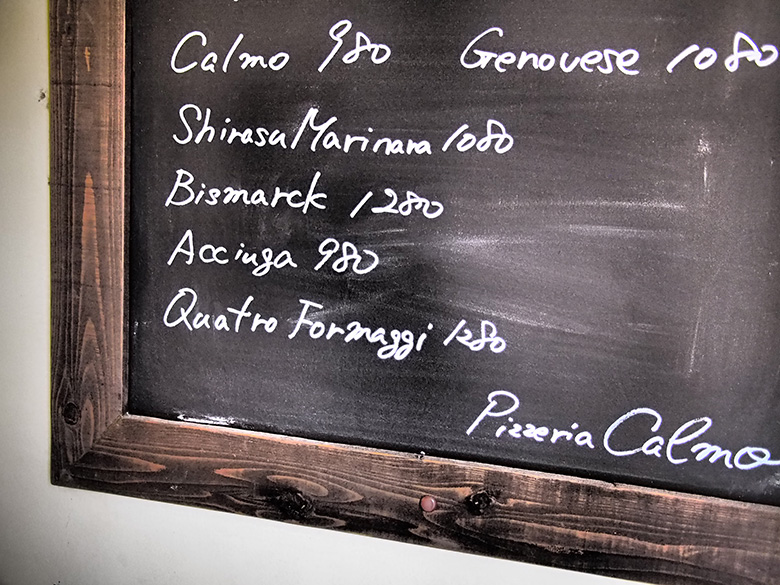 Calmo 980 Genovese 1080
Shirasu Marinara 1080
Bismarck 1280
Acciuga 980
Quatro Formaggi 1280
Pizzeria Calmo